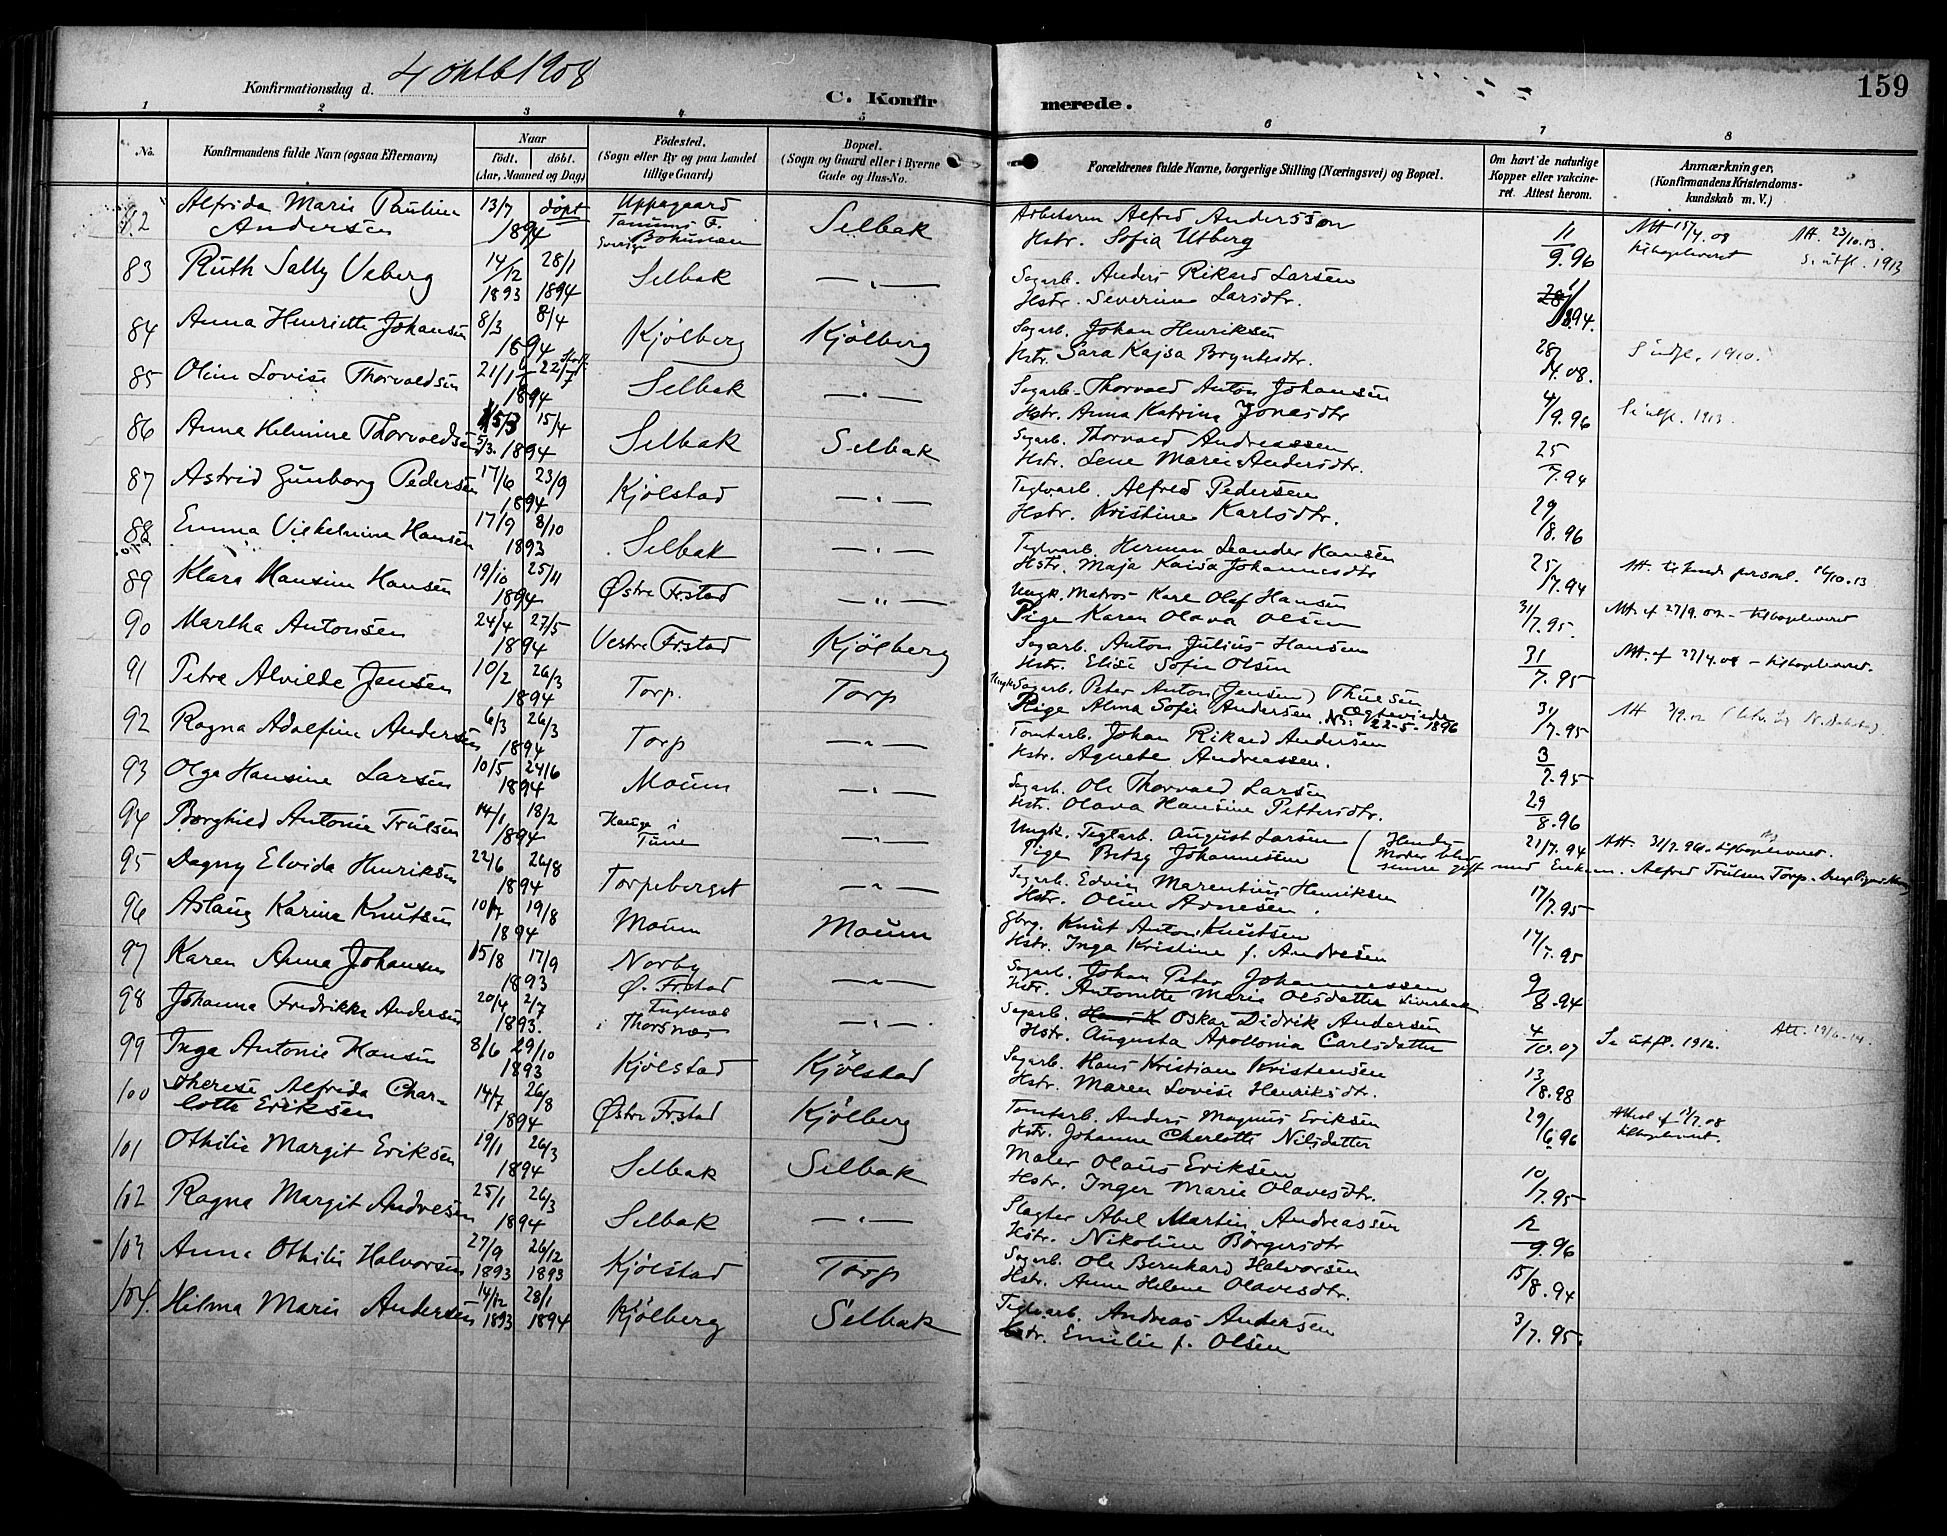 Konfirmationsdag d. 4 oktb 1908
C. Konfir merede.
159
1 2 3 4 5 6 7 8
No.
Konfirmandens fulde Navn (ogsaa Efternavn)
Naar
født. døbt.
(Aar, Maaned og Dag)
Fødested.
(Sogn eller By og paa Landet tillige Gaard)
Bopæl.
(Sogn og Gaard eller i Byerne Gade og Hus-No.
Forældrenes fulde Navne, borgerlige Stilling (Næringsvei) og Bopæl.
Om havt de naturlige Kopper eller vakcineret. Attest herom.
Anmærkninger,
(Konfirmandens Kristendomskundskab m. V.)
Alfrida Marie Paulina Andersen 13/7 1894 døpt Uppegaard Tanums F. Bohuslen Sverige Selbak
Arbeideren Alfred Andersson
Hstr. Sofia Utberg 11/9.96 Att 15/4.08 tilbageleveret Att. 23/10.13. S. utfl. 1913
83 Ruth Sally Veberg 14/12 1893 28/1 1894 Selbak — " —
Sagarb. Anders Rikard Larsen
Hstr. Severine Larsdtr.
84 Anna Henriette Johansen 8/3 8/4 1894 Kjölberg Kjölberg
Sagarb. Johan Henriksen
Hstr. Sara Kajsa Bryntesdtr. 28/4.08. S utfl. 1910.
85 Oline Lovise Thorvaldsen 21/1 22/7 1894 Selbak — " —
Sagarb. Thorvald Anton Johansen
Hstr. Anna Katrina Jonasdtr 4/9.96 Se utfl. 1913.
86 Anna Helmine Thorvaldsen 15/3 5/3. 15/4 1894 Selbak Selbak
Sagarb. Thorvald Andreassen
Hstr. Lene Marie Andersdtr. 25/7.94
87 Astrid Gunborg Pedersen 17/6 23/9 1894 Kjölstad — " —
Teglvarb. Alfred Pedersen
Hstr. Kristine Karlsdtr. 29/8.96
88 Emma Vilhelmina Hansen 17/9 8/10 1893 Selbak — " —
Teglvarb. Herman Leander Hansen
Hstr. Maja Kaisa Johannesdtr 25/7.94
89 Klara Hansine Hansen 19/10 25/11 1894 Østre Frstad — " —
Ungk. Matros Karl Olaf Hansen
Pige Karen Olava Olsen 31/7.95.
90 Martha Antonsen 24/4 27/5 1894 Vestre Frstad Kjölberg
Sagarb. Anton Julius Hansen
Hstr. Elise Sofie Olsen 31/7.95
91 Petra Alvilde Jensen 10/2 26/3 1894 Torp. Torp
Ungk. Sagarb. Peter Anton (Jensen) Thuesen
Pige Alma Sofie Andersen. 22-5-1896 31/7.95
92 Ragna Adolfine Andersen 6/3 26/3 1894 Torp — " —
Tomtarb. Johan Rikard Andersen
Hstr. Agnete Andreassen. 3/7.95
93 Olga Hansine Larsen 10/5 24/6 1894 Moum — " —
Sagarb. Ole Thorvald Larsen
Hstr. Olava Hansine Pettersdtr. 29/8.96
94 Borghild Antonie Trulsen 14/1 18/2 1894 Hauge i Tune — " —
Ungk. Teglarb. August Larsen
Pige Betsy Johannesen 21/7.94
95 Dagny Elvida Henriksen 22/6 26/8 1894 Torpeberget — " —
Sagarb. Edvin Marentius Henriksen
Hstr. Oline Arnesen. 17/7.95
96 Aslaug Karina Knutsen 10/7 19/8 1894 Moum Moum
Gbrg. Knut Anton Knutsen
Hstr. Inga Kristine f. Andresen 17/7.95
97 Karen Anna Johansen 15/8 17/9 1893 Norby Ø. Frstad — " —
Sagarb. Johan Peter Johannessen
Hstr. Antonette Marie Olsdatter 9/8.94
98 Johanna Fredrikke Andersen 20/4 2/7 1893. i Thorsnæs — " —
Sagarb. Oskar Didrik Andersen
Hstr. Augusta Apollonia Carlsdatter 4/10.07 Se utfl. 1912.
99 Inga Antonie Hansen 8/6 29/10 1893 Kjölstad Kjölstad
Sagarb. Hans Kristian Kristensen
Hstr. Maren Lovise Henriksdtr. 13/8.98
100 Therese Alfrida Charlotte Eriksen 14/7 26/8 1894 Østre Frstad Kjölberg
Tomtarb. Anders Magnus Eriksen
Hstr. Johanne Cherlotte Nilsdatter 29/6.96
101 Othilie Margit Eriksen 19/1 26/3 1894 Selbak Selbak
Maler Olaus Eriksen
Hstr. Inger Marie Olavesdtr. 10/7.95
102 Ragna Margit Andresen 25/1 26/3 1894 Selbak — " —
Slagter Abel Martin Andreassen
Hstr. Nikoline Börgersdtr 12/9.96
103 Anna Othilie Halvorsen 27/9 1893 26/12 1893 Kjölstad Torp
Sagarb. Ole Bernhard Halvorsen
Hstr. Anne Helene Olavesdtr. 15/8.94
104. Hilma Marie Andersen 14/12 1893 28/1 1894 Kjölberg Selbak
Teglvarb. Andreas Andersen
Hstr. Emilie f. Olsen 3/7.95.